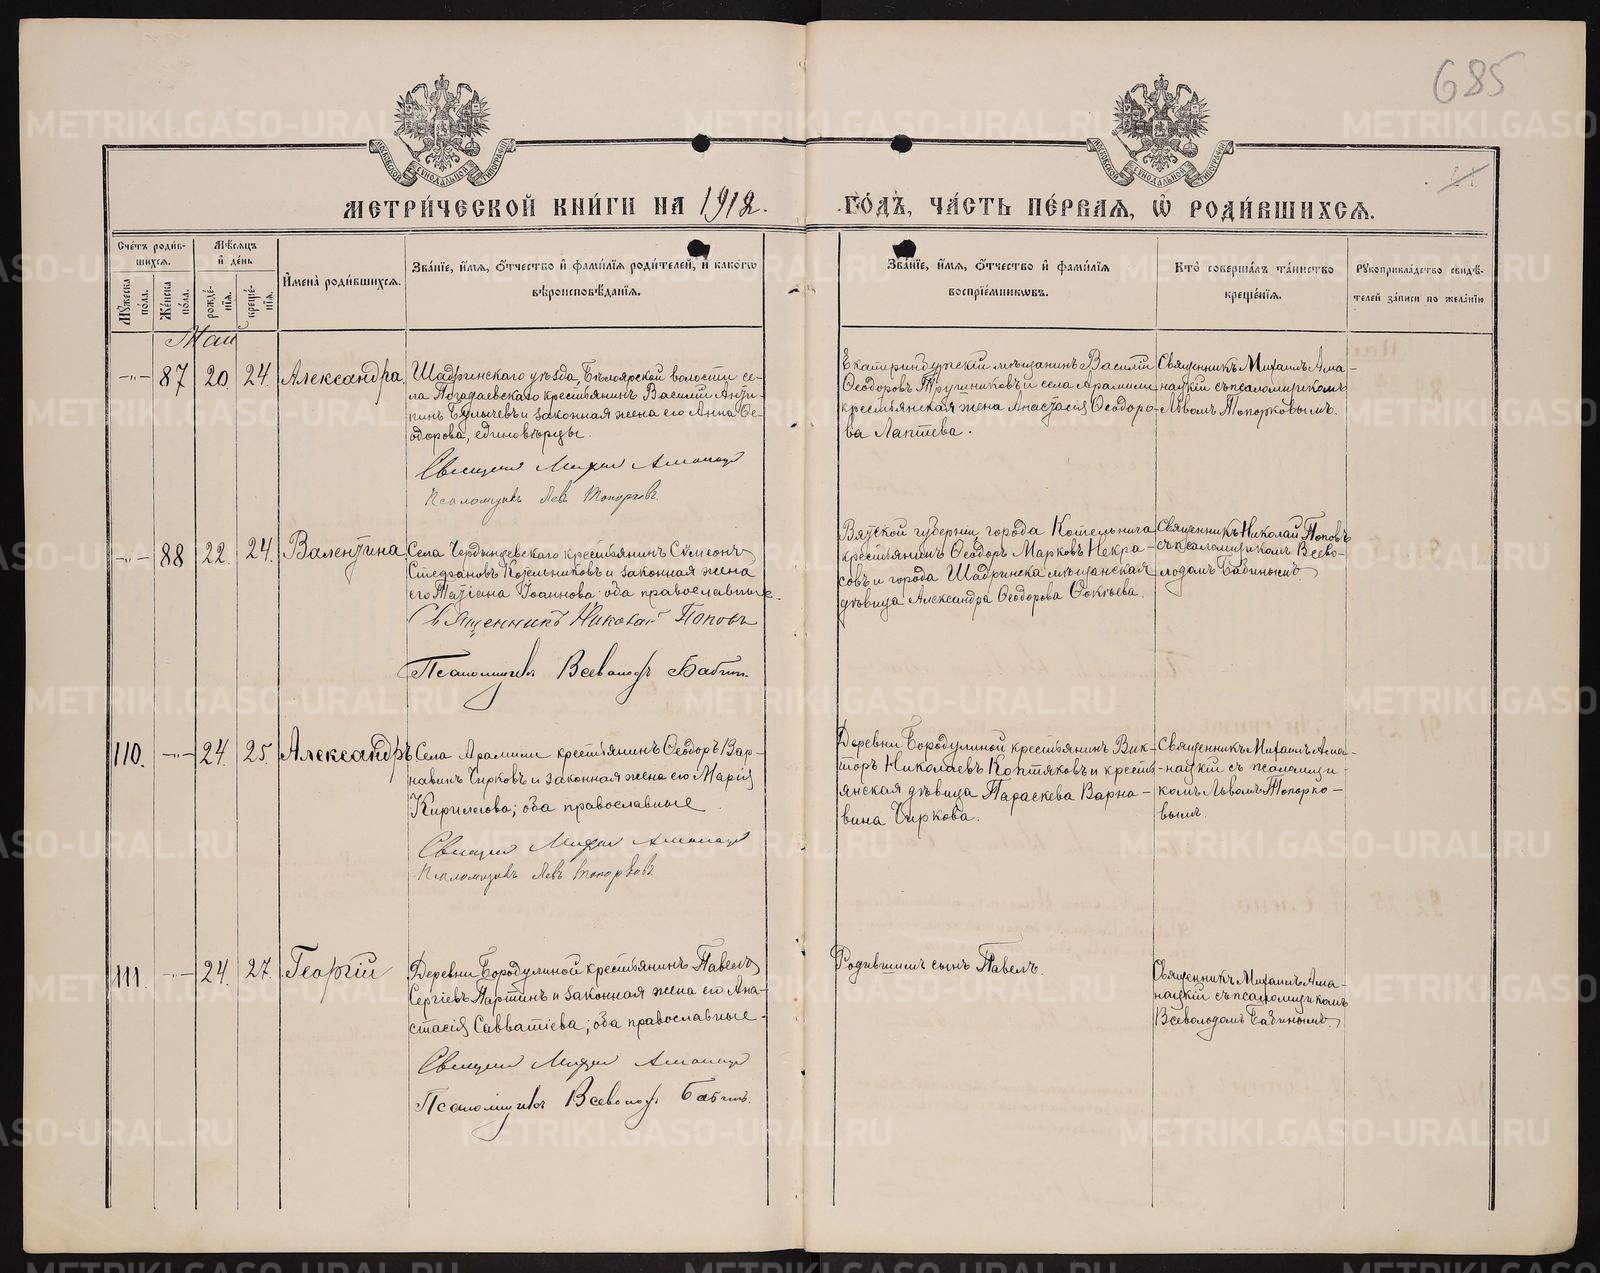 685
МОСКОВСКОЙ СѴНОДАЛЬНОЙ ТИПОГРАФІИ
МОСКОВСКОЙ СѴНОДАЛЬНОЙ ТИПОГРАФІИ
МЕТРИ́ЧЕСКОЙ КНИ́ГИ НА 1912. ГО́ДЪ, ЧА́СТЬ ПЕ́РВАЯ, Ѡ РОДИ́ВШИХСЯ.
Сче́тъ роди́в-
шихся.
Мѣ́сяцъ
и де́нь
Му́жеска
по́ла.
Же́нска
по́ла.
рожде́-
нія.
креще́-
нія.
И҆мена̀ роди́вшихся.
Зва́ніе, и҆́мя, ѻ҆́тчество и҆ фами́лія роди́телей, и҆ како́гѡ
вѣроисповѣ́данія.
Зва́ніе, и҆́мя, ѻ҆́тчество и҆ фами́лія
воспріе́мникѡвъ.
Кто̀ соверша́лъ та́инство
креще́нія.
Рукоприкла́дство свидѣ́-
телей за́писи по жела́нію
Май
-"- 87 20 24. Александра.
Шадринскаго уѣзда, Бѣлоярской волости се-
ла Погадаевскаго крестьянинъ Василій Анти-
пинъ Булычевъ и законная жена его Анна Ѳе-
одорова, единовѣрцы.
Священникъ Михаилъ Аманацкій
Псаломщикъ Левъ Топорковъ.
Екатеринбургскій мѣщанинъ Василій
Ѳеодоровъ Трушниковъ и села Арамили
крестьянская жена Анастасія Ѳеодоро-
ва Лаптева.
Священникъ Михаилъ Ама-
нацкій съ псаломщикомъ
Львомъ Топорковымъ.
-"- 88 22. 24. Валентина
Села Чердынцевскаго крестьянинъ Сѵмеонъ
Стефановъ Котельниковъ и законная жена
его Татіана Іоаннова оба православные.
Священникъ Николай Поповъ
Псаломщикъ Всеволодъ Бабинъ.
Вятской губерніи города Котельнича
крестьянинъ Ѳеодоръ Марковъ Некра-
совъ и города Шадринска мѣщанская
дѣвица Александра Ѳеодорова Ѳокѣева.
Священникъ Николай Поповъ
съ псаломщикомъ Всево-
лодомъ Бабинымъ
110. -"- 24. 25. Александръ
Села Арамили крестьянинъ Ѳеодоръ Вар-
навинъ Чирковъ и законная жена его Марія
Кириллова; оба православные
Священникъ Михаилъ Аманацкій
Псаломщикъ Левъ Топорковъ
Деревни Бородулиной крестьянинъ Вик-
торъ Николаевъ Коптяковъ и кресть-
янская дѣвица Параскева Варна-
вина Чиркова.
Священникъ Михаилъ Ама-
нацкій съ псаломщи-
комъ Львомъ Топорко-
вымъ.
111. -"- 24. 27. Георгій
Деревни Бородулиной крестьянинъ Павелъ
Сергіевъ Партинъ и законная жена его Ана-
стасія Савватіева; оба православные.
Священникъ Михаилъ Аманацкій
Псаломщикъ Всеволодъ Бабинъ.
Родившаго сынъ Павелъ.
Священникъ Михаилъ Ама-
нацкій съ псаломщикомъ
Всеволодомъ Бабинымъ
METRIKI.GASO-URAL.RU